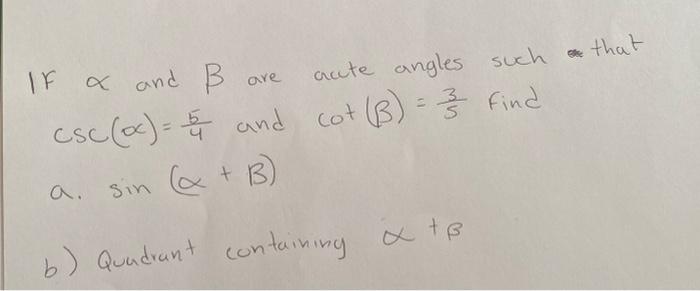 IF α and β are acute angles such that
csc(α) = 5/4 and cot(β) = 3/5 Find
a. sin (α + β)
b) Quadrant containing α + β